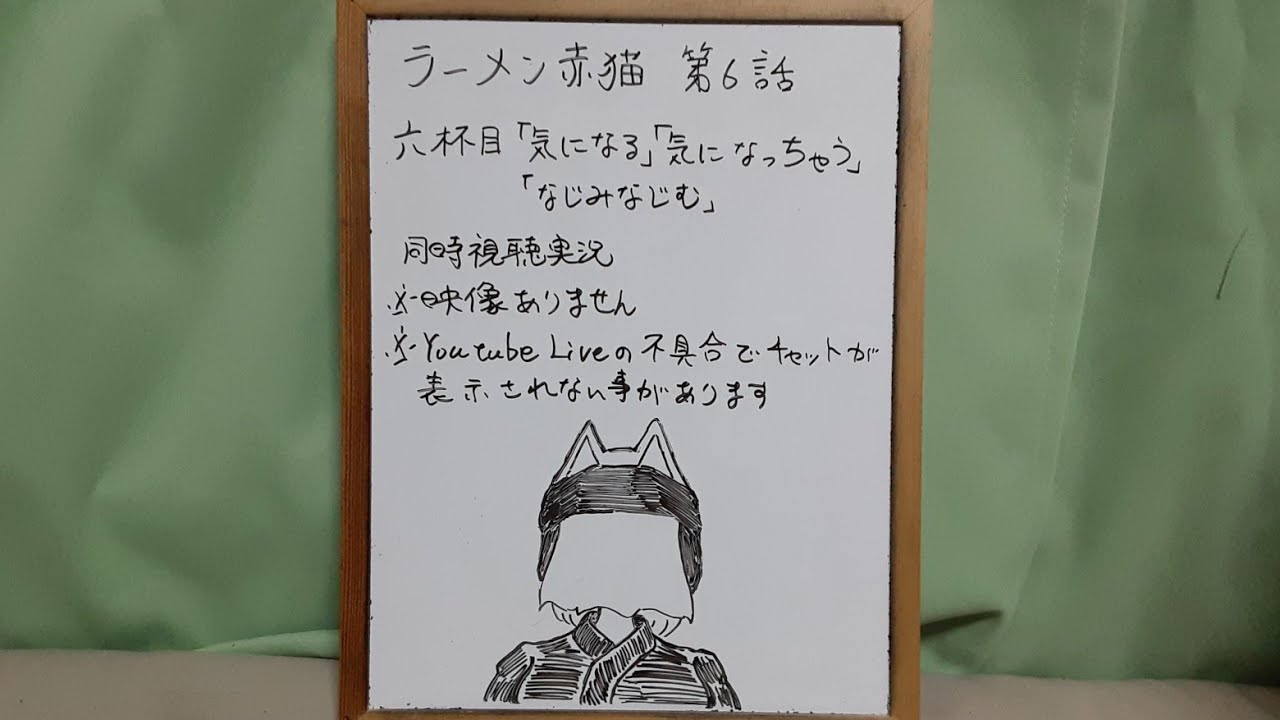 ラーメン赤猫 第6話
六杯目「気になる」「気になっちゃう」
「なじみなじむ」
同時視聴実況
※映像ありません
※Youtube Liveの不具合でチャットが
表示されない事があります